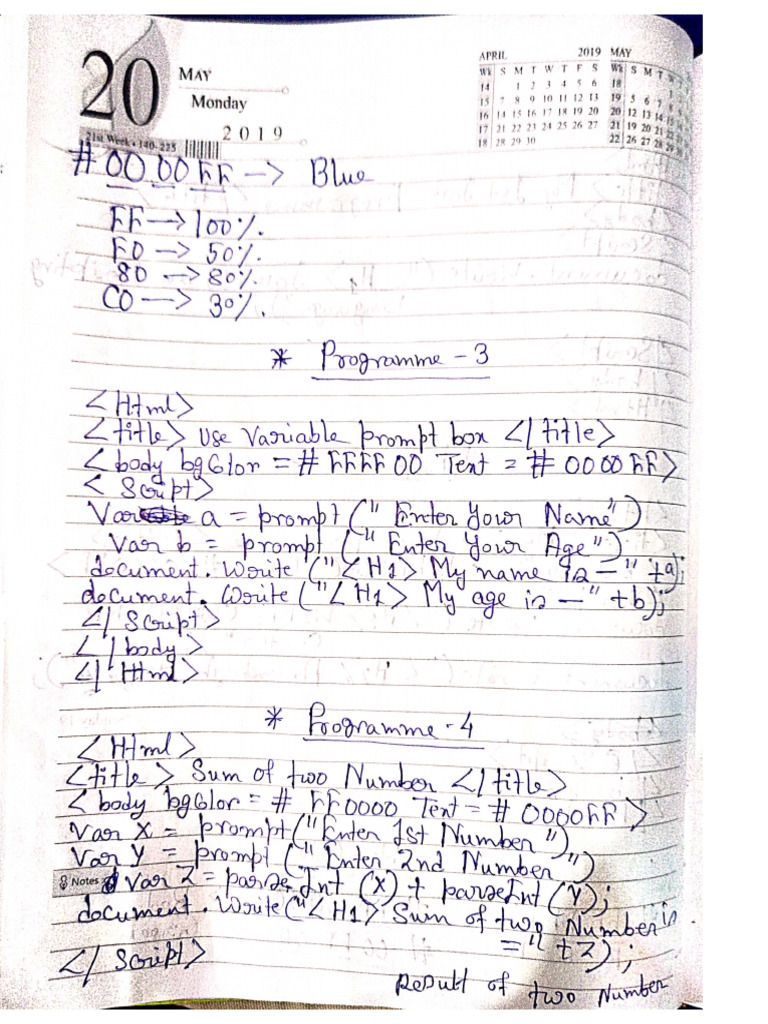 20
MAY
Monday
2019
21st Week • 140-225
APRIL 2019 MAY
Wk S M T W T F S
14 1 2 3 4 5 6
15 7 8 9 10 11 12 13
16 14 15 16 17 18 19 20
17 21 22 23 24 25 26 27
18 28 29 30
Wk S M T
18
19 5 6 7
20 12 13 14
21 19 20 21
22 26 27 28
#0000FF —> Blue
FF —> 100%.
F0 —> 50%.
80 —> 80%.
C0 —> 30%.
* Programme - 3
<Html>
<title> Use Variable prompt box </title>
<body bgColor = # FFFF00 Text = # 0000FF>
< Script>
Var a = prompt (" Enter your Name")
Var b = prompt (" Enter Your Age")
document. Write ("<H1> My name is —" +a);
document. Write ("<H1> My age is —" +b);
</ Script>
</ body>
</ Html>
* Programme - 4
<Html>
<title> Sum of two Number </title>
< body bgColor = # FF0000 Text = # 0000FF >
Var X = prompt("Enter 1st Number")
Var Y = prompt (" Enter 2nd Number ")
Notes Var Z = parseInt (X) + parseInt (Y);
document. Write ("<H1> Sum of two Number is
=" +Z);
</ Script>
Result of two Number